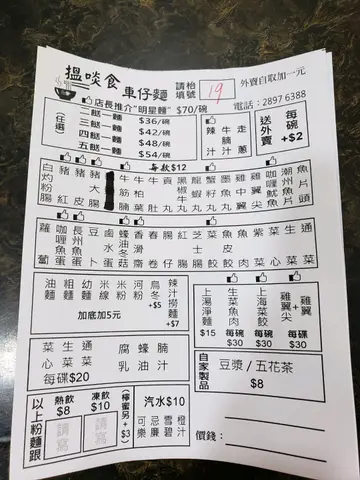 搵啖食
車仔麵
請枱填號
19
外賣自取加一元
電話：2897 6388
店長推介"明星麵" $70/碗
任選
一餸一麵 $36/碗
三餸一麵 $42/碗
四餸一麵 $48/碗
五餸一麵 $54/碗
辣汁
牛腩汁
走蔥
送外賣
每碗+$2
每款$12
白灼粉腸
豬紅
豬皮
豬大腸
牛筋腩
牛柏葉
牛肚
貢丸
黑椒牛丸
龍蝦丸
蟹籽丸
墨魚丸
雞中翼
雞翼尖
咖喱魚丸
潮州魚片
魚片頭
蘿蔔
咖喱雞蛋
豆卜
鹵水蛋
蠔油冬菇
香滑齋
春卷
腸仔
紅腸
芝士腸
菜肉餃
魚皮餃
魚肉
紫菜
菜心
生菜
通菜
油麵
粗麵
幼麵
米線
米粉
河粉
烏冬+$5
辣汁撈麵+$7
加底加5元
上湯淨麵
$15
生菜魚肉
每碗$30
上海菜肉餃
每碗$30
雞翼尖+雞翼
$30
菜心
生菜
通菜
每碟$20
腐乳
蠔油
腩汁
自家製品
豆漿/五花茶
$8
以上粉麵跟
熱飲$8
請寫
凍飲$10
請寫
(檸蜜另+$3)
汽水$10
可樂
忌廉
雪碧
橙汁
價錢：